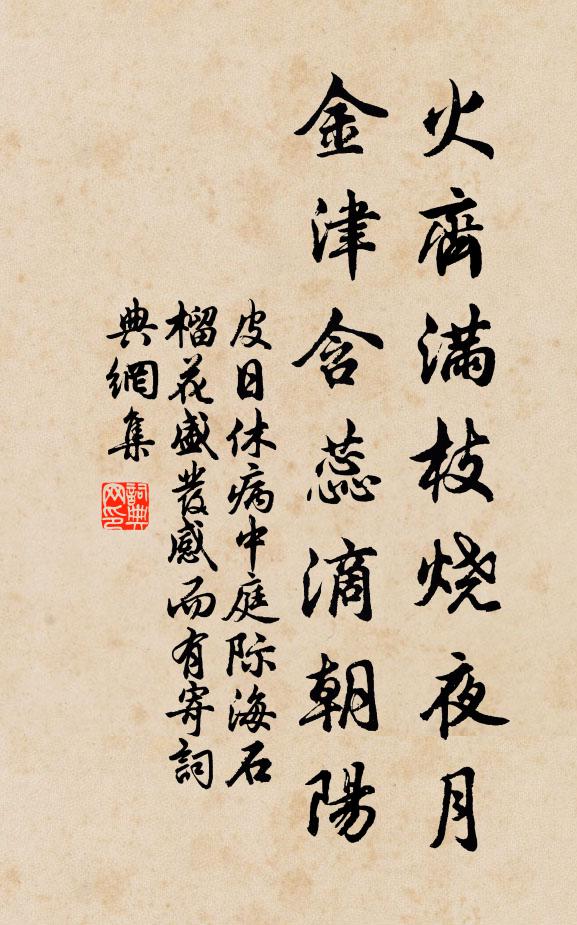 火齊滿枝烧夜月
金津含蕊滴朝陽
皮日休病中庭际海石
榴花盛發感而有寄詞
典網集
詞典
网印